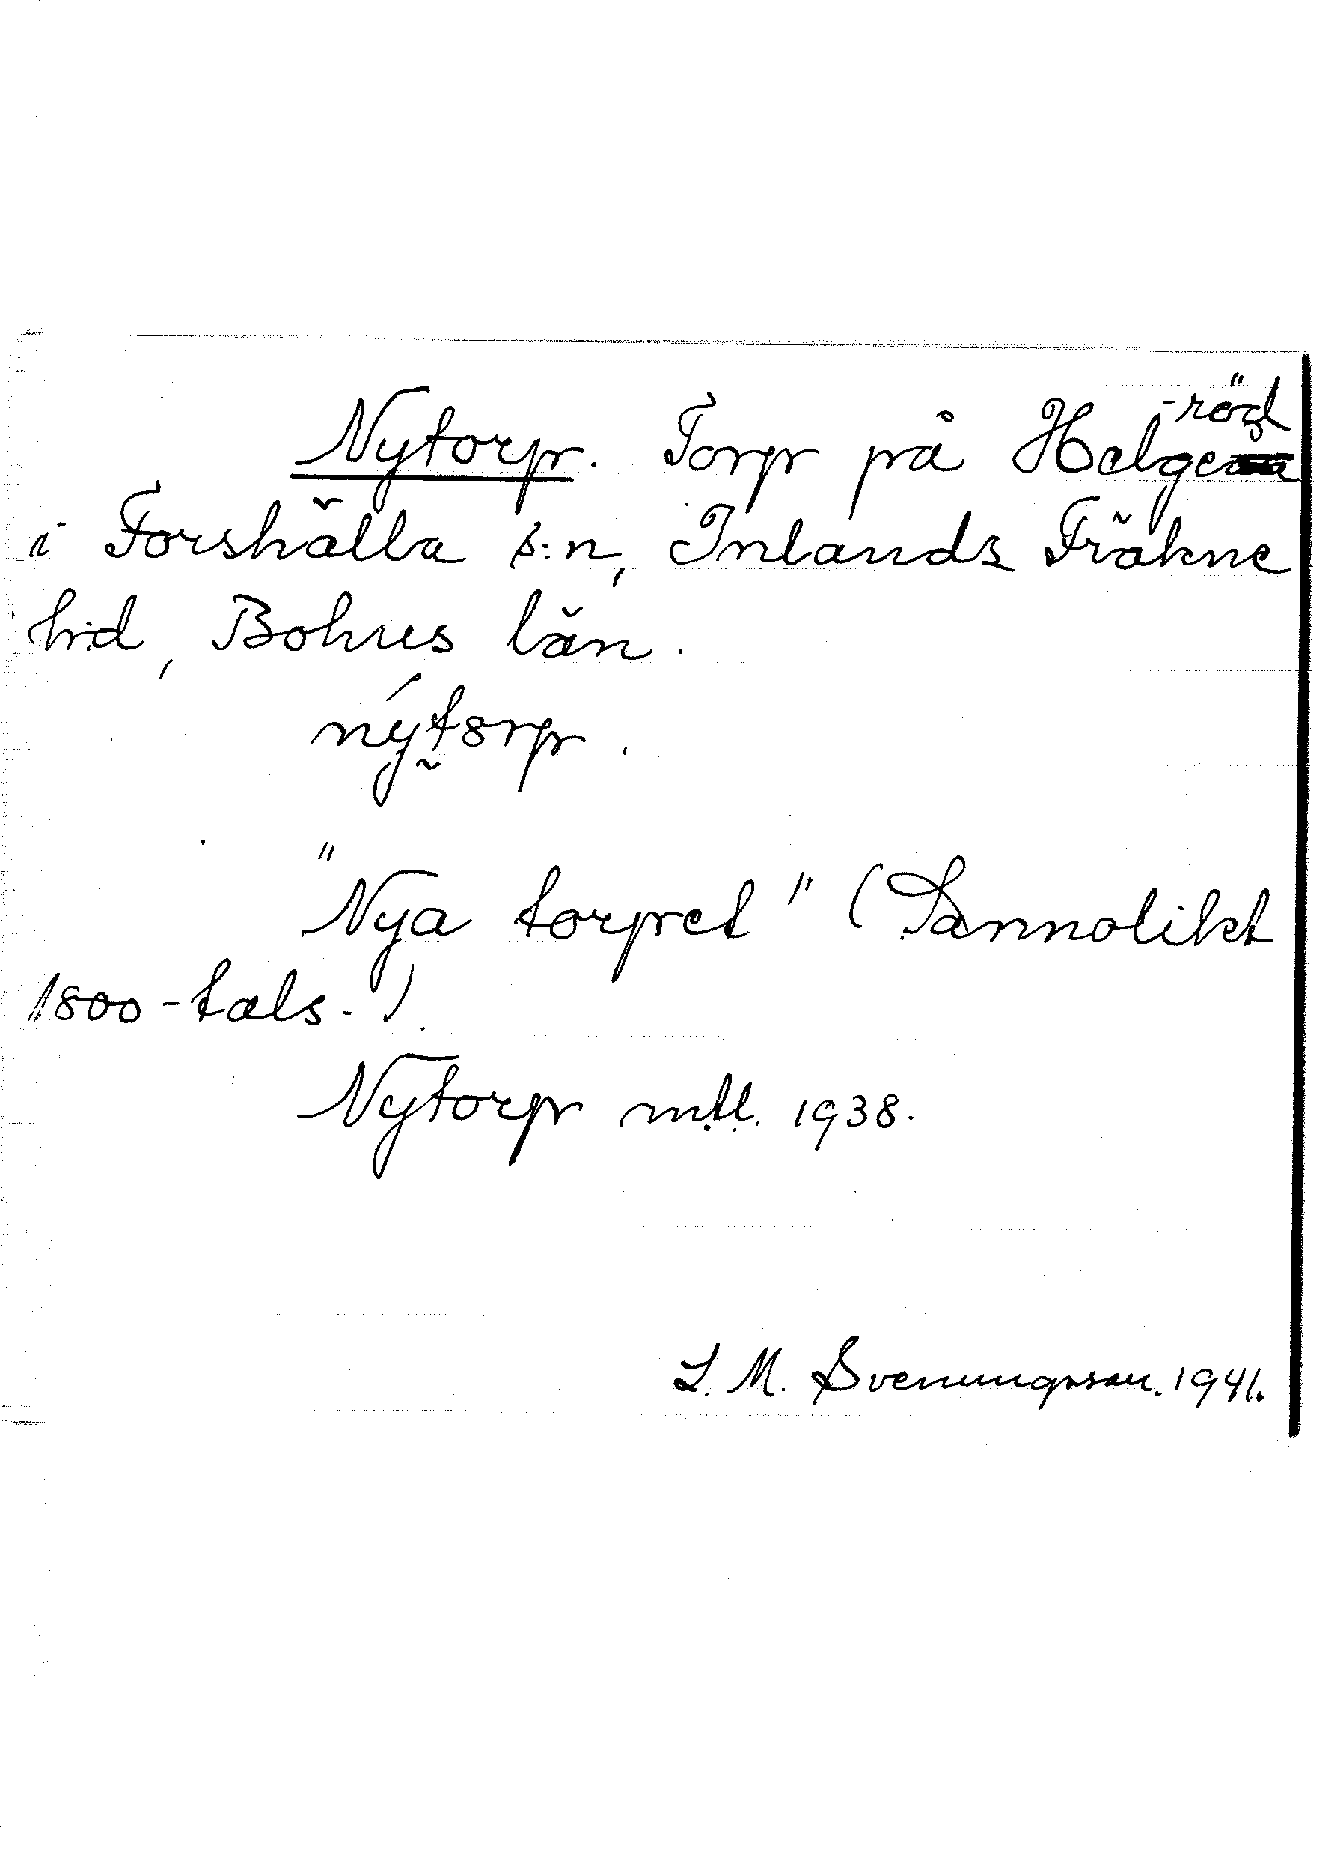 Nytorp. Torp på Helgeröd
i Forshälla s:n, Inlands Fräkne
hd, Bohus län.
nýtorp.
"Nya torpet" (Sannolikt
1800-tals-)
Nytorp mtl. 1938.
L. M. Svenungsson. 1941.